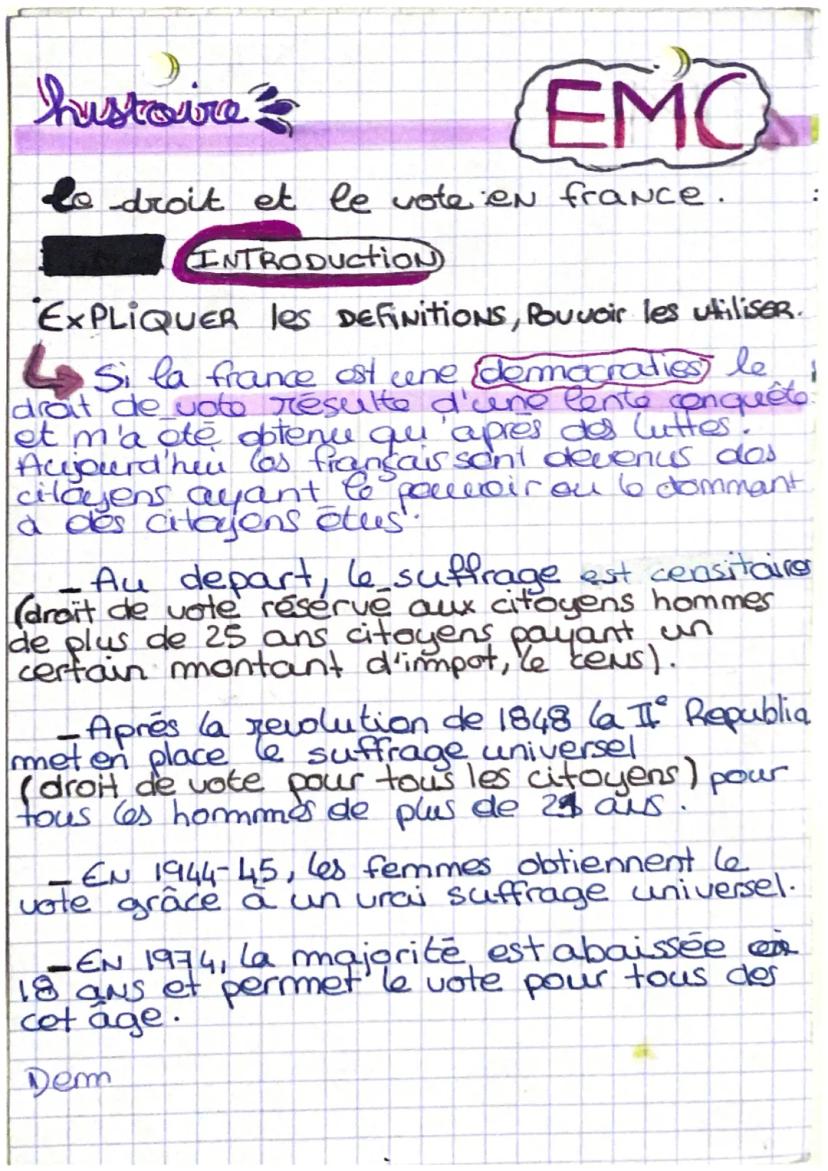 histoire
EMC
le droit et le vote en france.
INTRODUCTION
EXPLIQUER les DEFINITIONS, Pouvoir les utiliser.
Si la france est une democraties le
droit de vote résulte d'une lente conquête
et m'a été obtenu qu'après des luttes.
Aujourd'hui les français sont devenus des
citoyens ayant le pouvoir ou le dommant
à des citoyens élus.
- Au depart, le suffrage est censitaires
(droit de vote réservé aux citoyens hommes
de plus de 25 ans citoyens payant un
certain montant d'impot, le cens).
- Après la revolution de 1848 la IIe Republiq
met en place le suffrage universel
(droit de vote pour tous les citoyens) pour
tous les hommmes de plus de 21 ans.
- En 1944-45, les femmes obtiennent le
vote grâce à un vrai suffrage universel.
- En 1974, la majorité est abaissée
18 ans et permmet le vote pour tous des
cet âge.
Dem